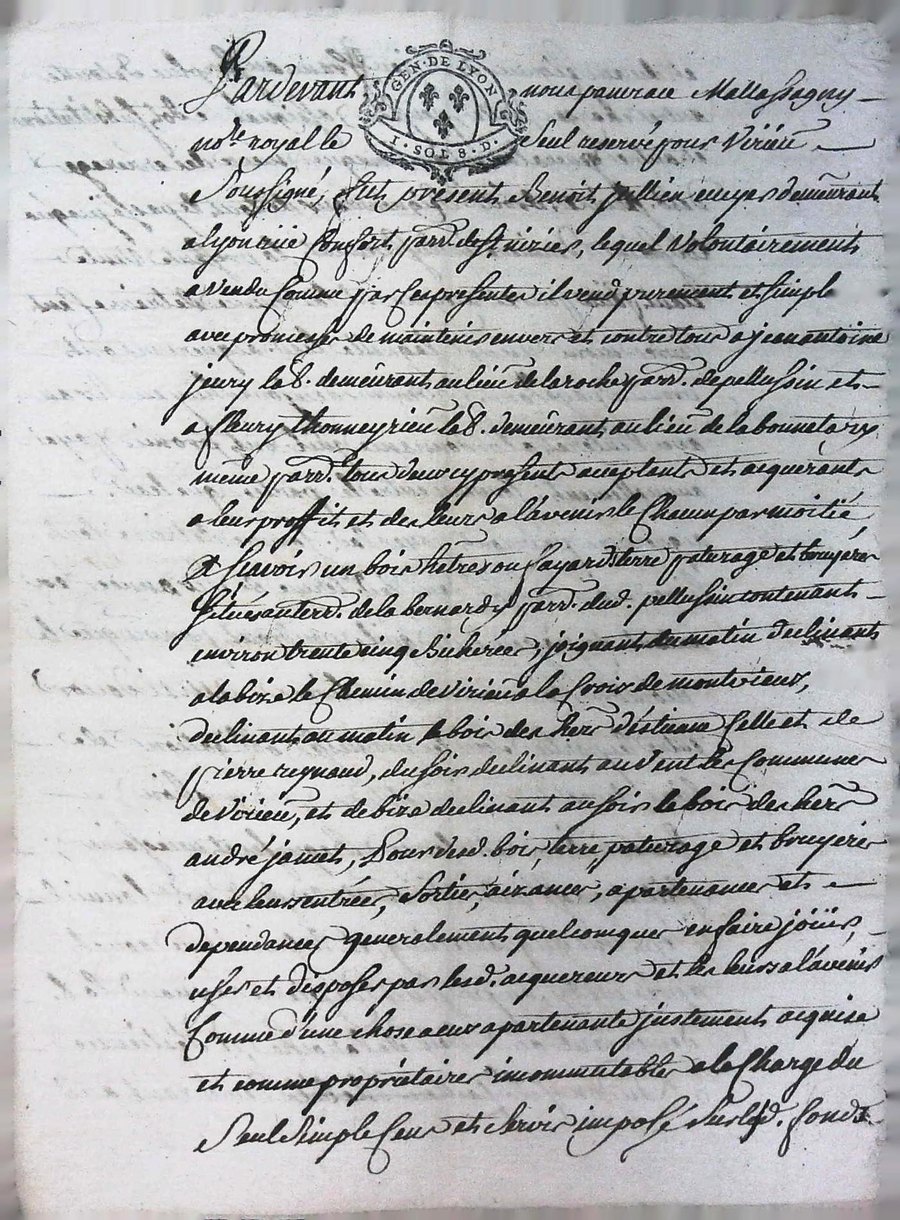 Pardevant nous pancrace Mallassagny
GEN. DE LYON
1. SOL 8. D.
no.re royal le Seul reservé pour Virieu
Soussigné, fut présent Benoit jullien demeurant
a lyon rüe Confort parr.e de St. nizier, lequel Volontairement
a Vendu Comme par Ces presentes il vend purement et simple
avec promesse de maintenir envers et contre tous a jean antoine
jeury lab. demeurant au lieu de la roche parr.e de pellussin et
a fleury thonneyrieu lab. demeurant au lieu de la bonneta
même parr.e tous deux cy presents aceptants et acquerants
a leur proffit et des leurs a l'avenir le Chacun par moitié
A scavoir un bois hêtres ou fayard terre paturage et bruyeres
Situés au terr.e de la bernardy parr.e dud. pellussin contenant
environ trente cinq Bicherées, joignant du matin declinant
a la bize le Chemin de Virieu a la Croix de montvieux,
declinant au matin le bois des her.s d'étienne Celle et de
pierre reynaud, du soir declinant au Vent les Communes
de Virieu, et de bize declinant au soir le bois des hers
andré jamet, Pour desd. bois, terre paturage et bruyeres
avec leurs entrées, Sorties, aizances, apartenances et
dependances generalement quelconques en faire joüir,
user et disposer par lesd. acquereurs et les leurs a l'avenir
Comme d'une chose a eux apartenante justement acquise
et comme propriétaires incommutables a la Charge du
Seul Simple Cens et Servis imposé Sur lesd. fonds